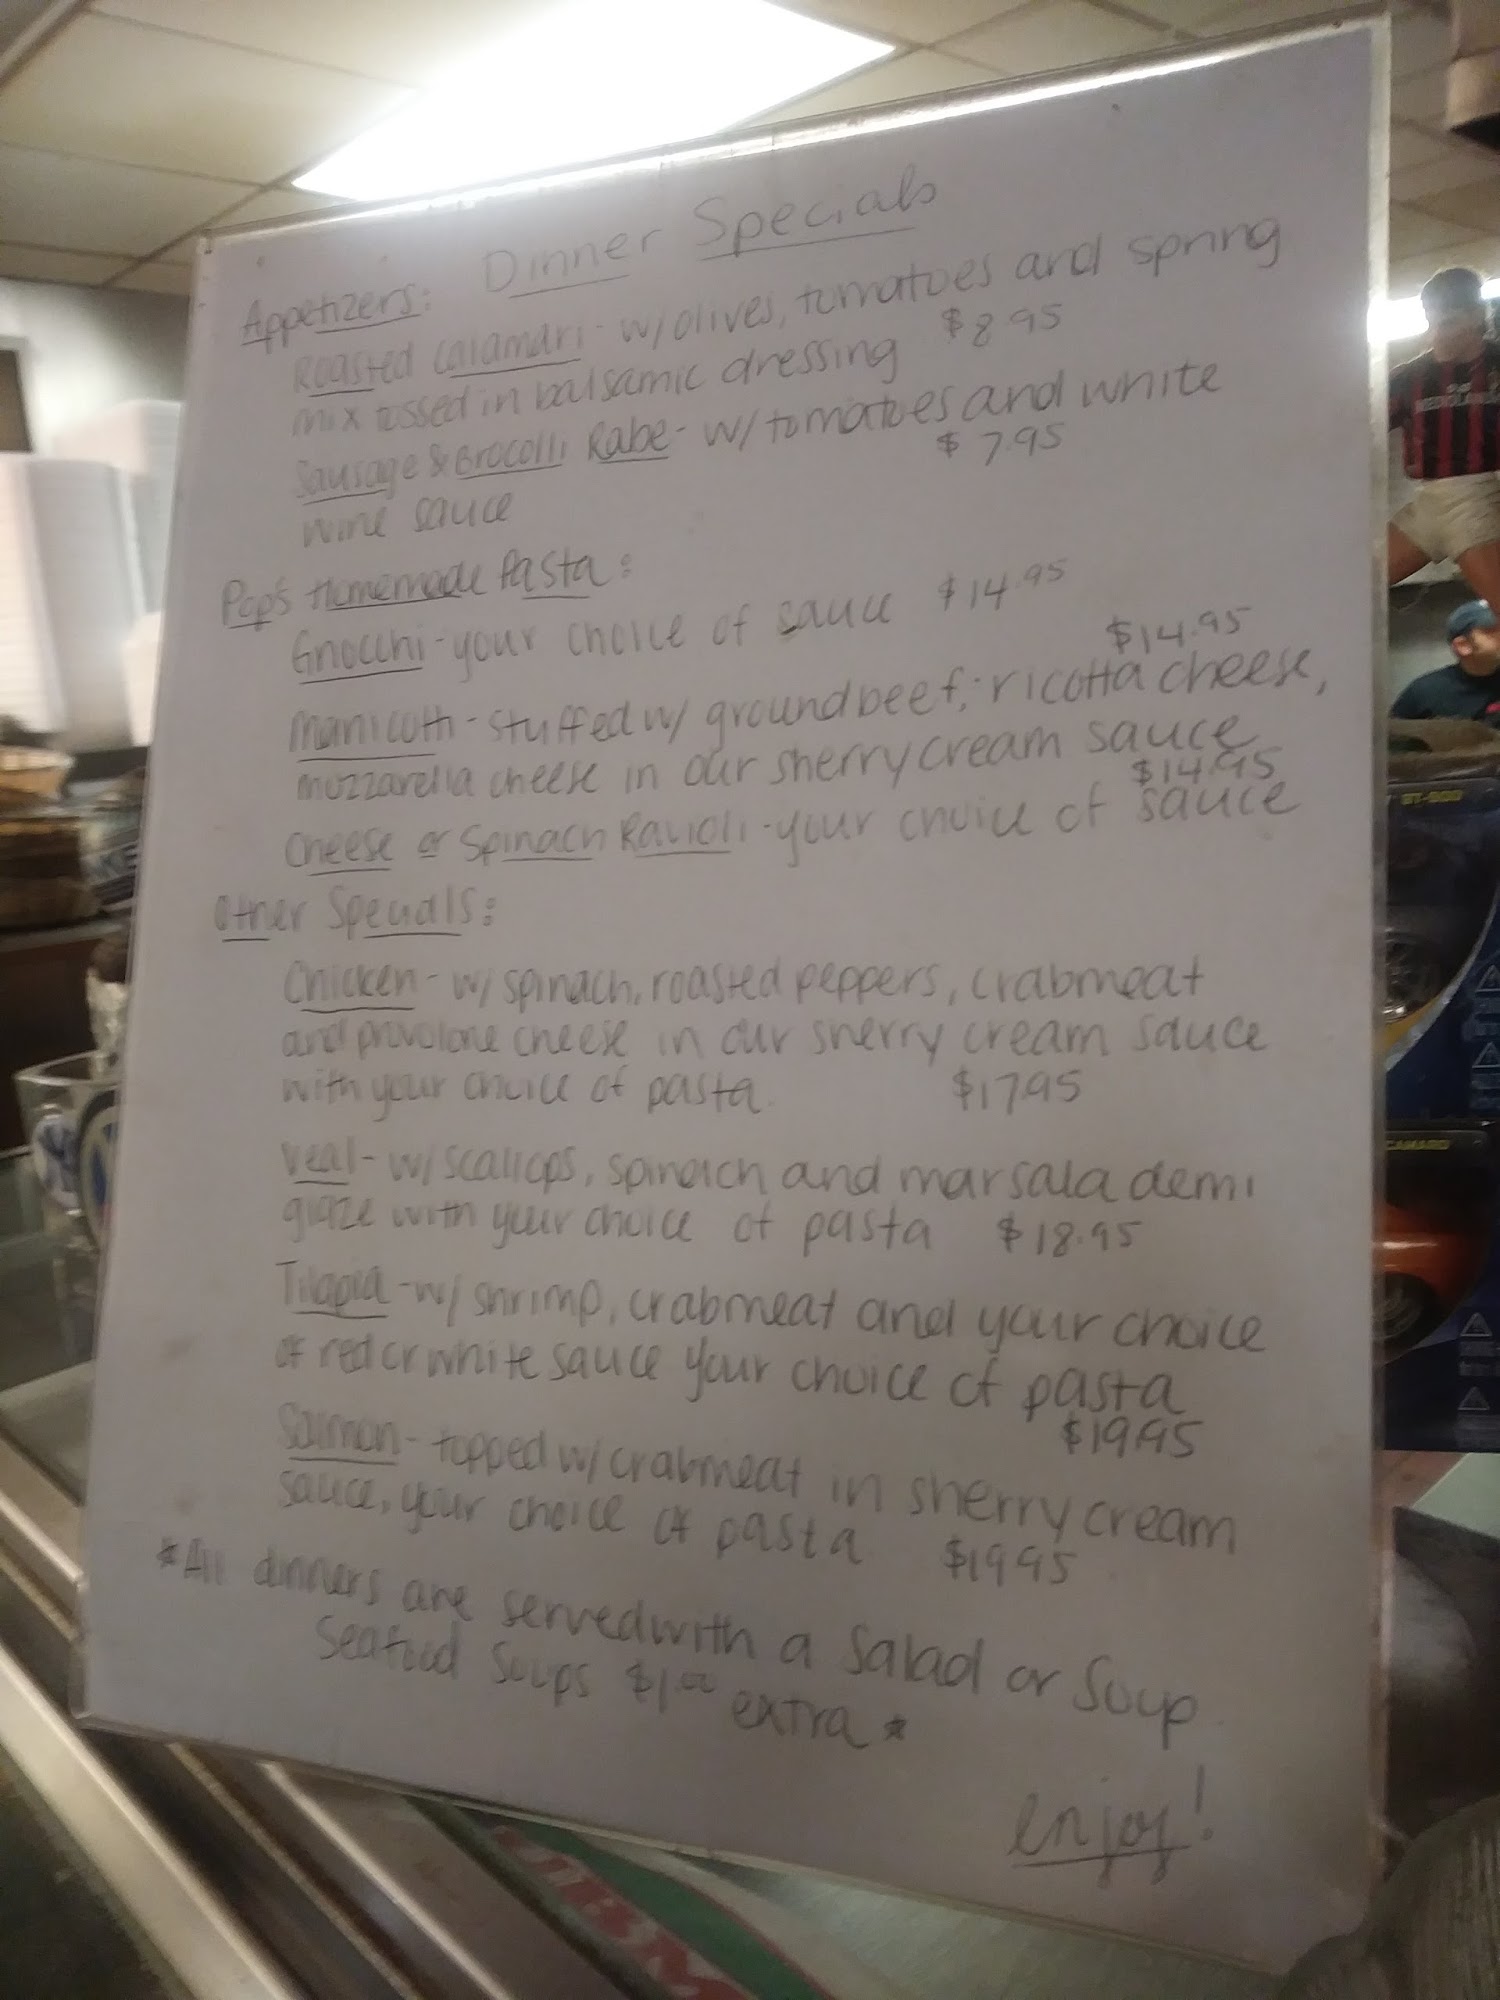 Dinner Specials
Appetizers:
Roasted Calamari - w/olives, tomatoes and spring
mix tossed in balsamic dressing $8.95
Sausage & Brocolli Rabe - w/tomatoes and white
wine sauce $7.95
Pop's Homemade Pasta:
Gnocchi - your choice of sauce $14.95
$14.95
Manicotti - stuffed w/ ground beef, ricotta cheese,
mozzarella cheese in our sherry cream sauce
$14.95
Cheese or Spinach Ravioli - your choice of sauce
Other Specials:
Chicken - w/ spinach, roasted peppers, crabmeat
and provolone cheese in our sherry cream sauce
with your choice of pasta. $17.95
Veal - w/scallops, spinach and marsala demi
glaze with your choice of pasta $18.95
Tilapia - w/ shrimp, crabmeat and your choice
of red or white sauce your choice of pasta
$19.95
Salmon - topped w/crabmeat in sherry cream
sauce, your choice of pasta $19.95
*All dinners are served with a Salad or Soup
Seafood Soups $1.00 extra *
enjoy!
CAMARO